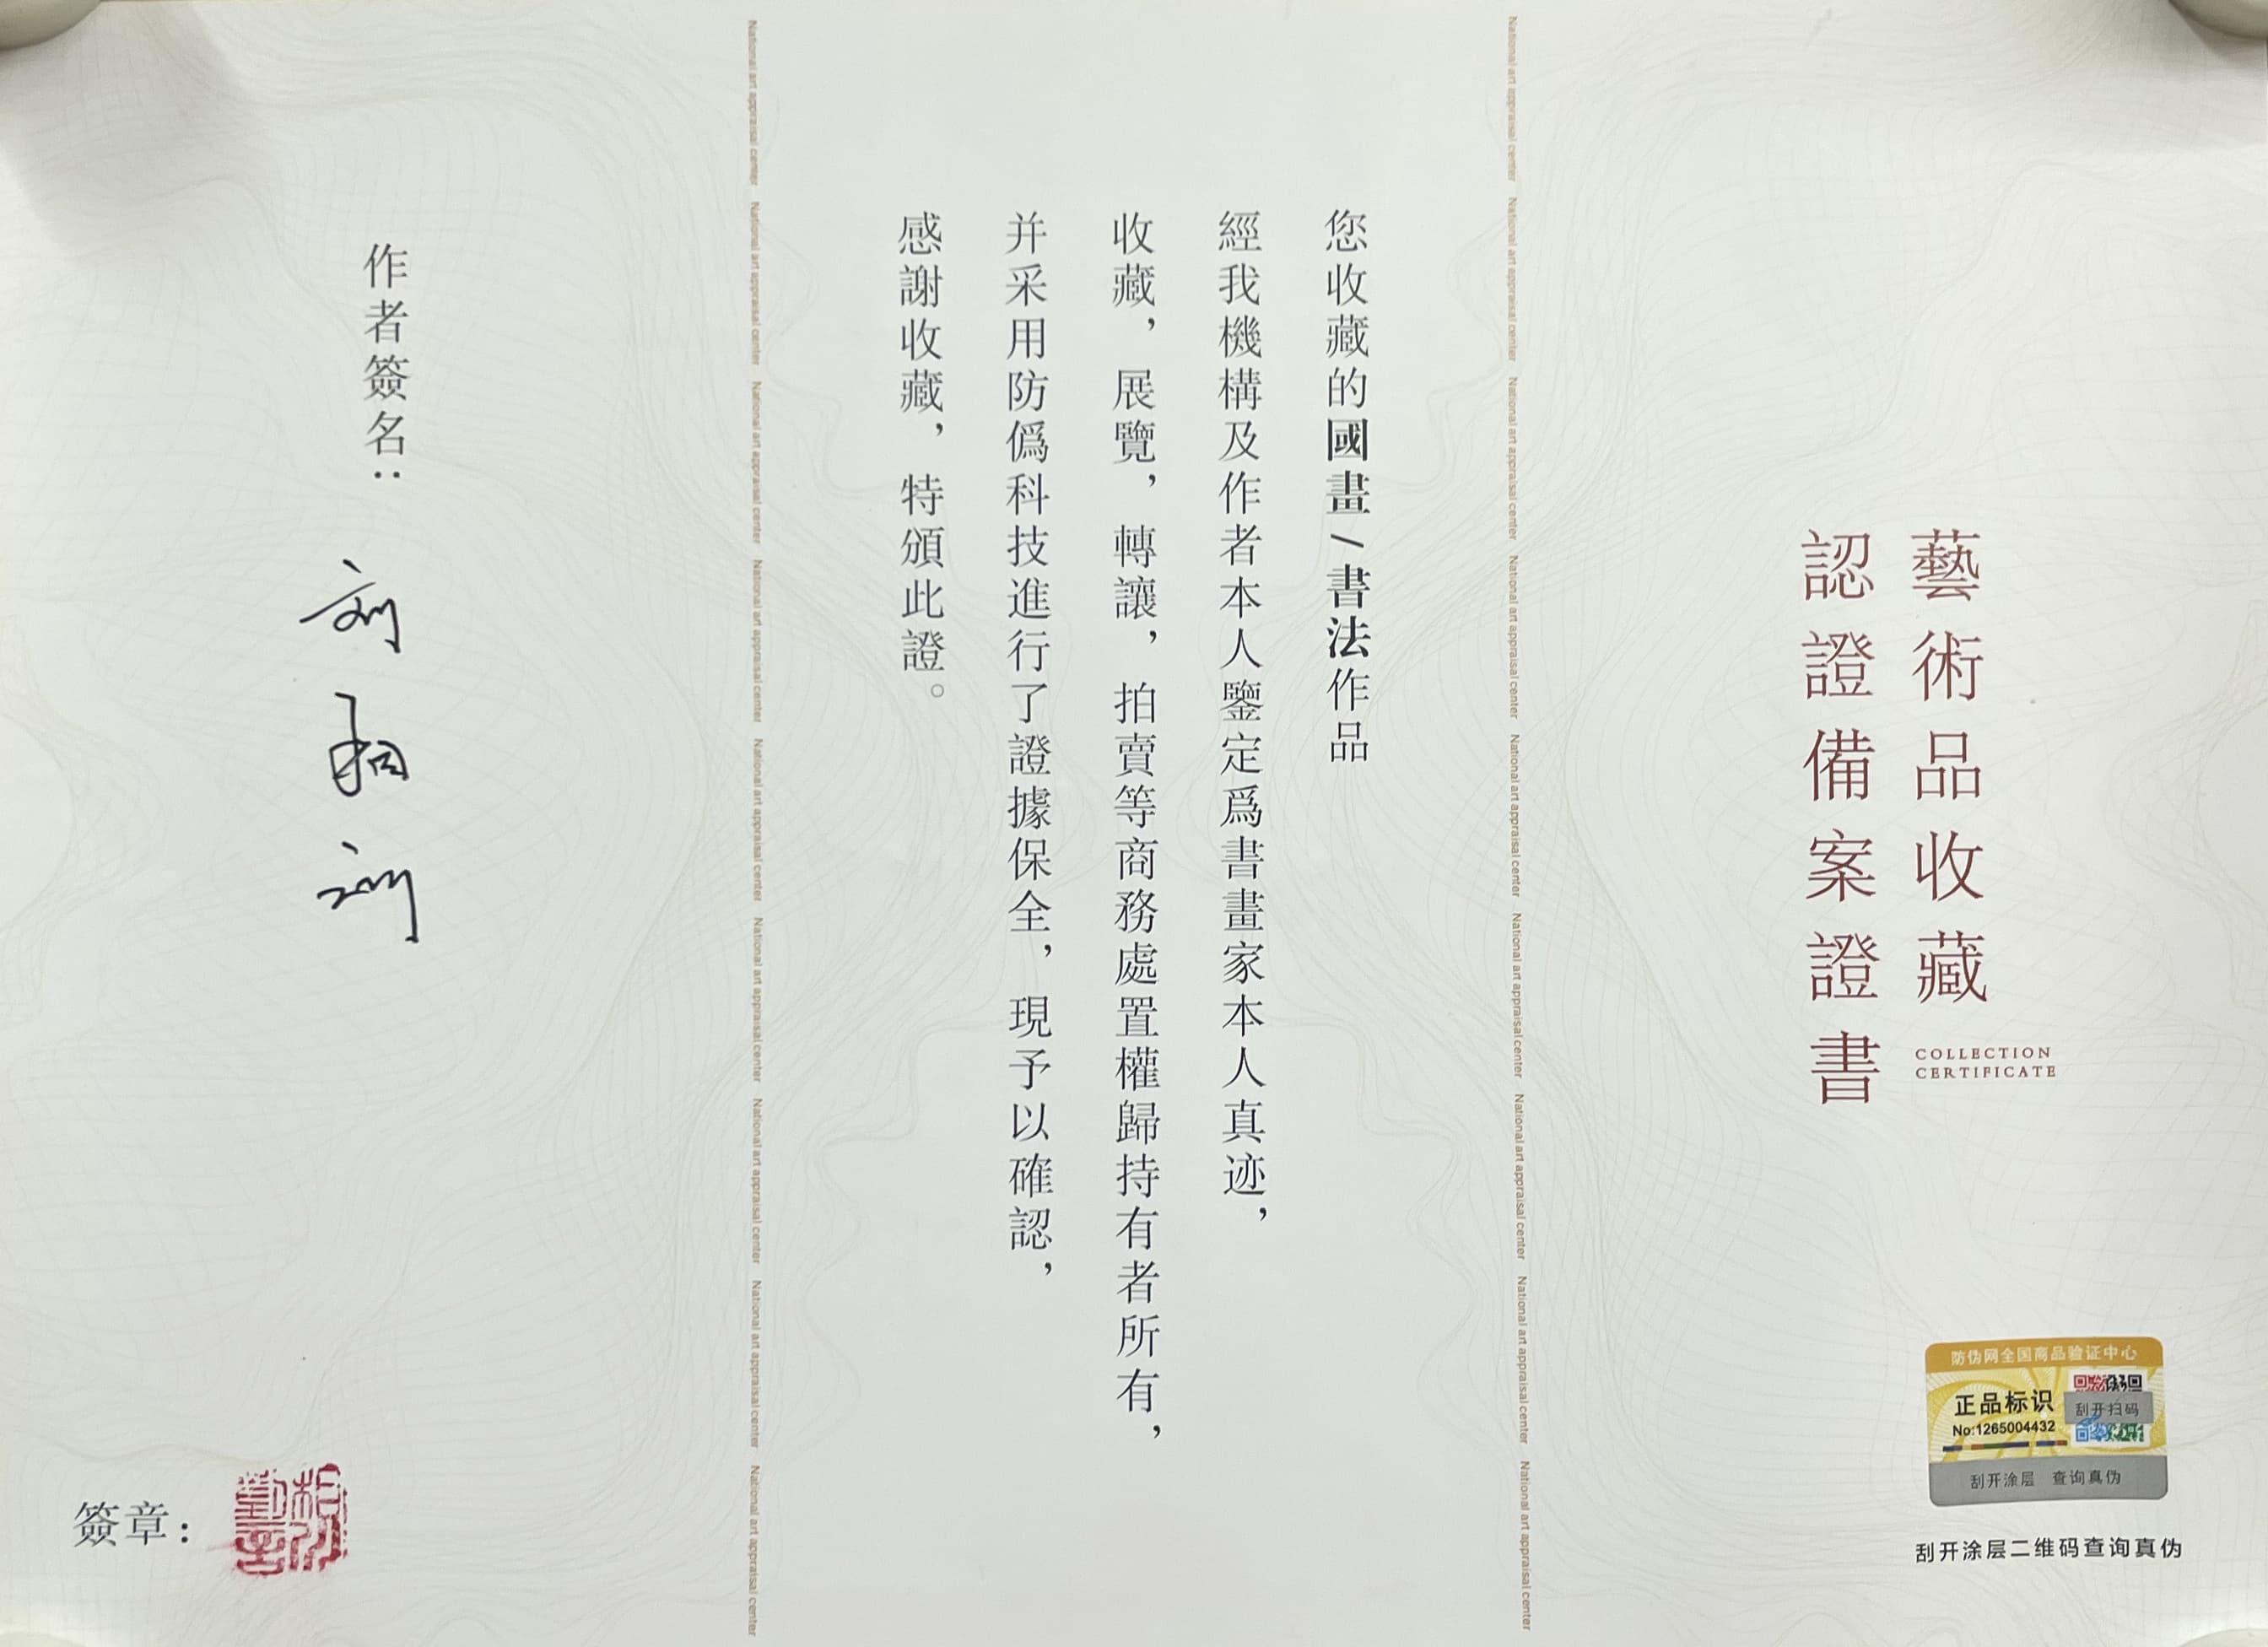 藝術品收藏
認證備案證書
COLLECTION
CERTIFICATE
防伪网全国商品验证中心
正品标识
No:1265004432
刮开扫码
刮开涂层 查询真伪
刮开涂层二维码查询真伪
National art appraisal center National art appraisal center National art appraisal center National art appraisal center National art appraisal center National art appraisal center National art appraisal center National art appraisal center National art appraisal center
您收藏的國畫/書法作品
經我機構及作者本人鑒定爲書畫家本人真迹，
收藏，展覽，轉讓，拍賣等商務處置權歸持有者所有，
并采用防僞科技進行了證據保全，現予以確認，
感謝收藏，特頒此證。
National art appraisal center National art appraisal center National art appraisal center National art appraisal center National art appraisal center National art appraisal center National art appraisal center National art appraisal center National art appraisal center
作者簽名：劉相訓
簽章：